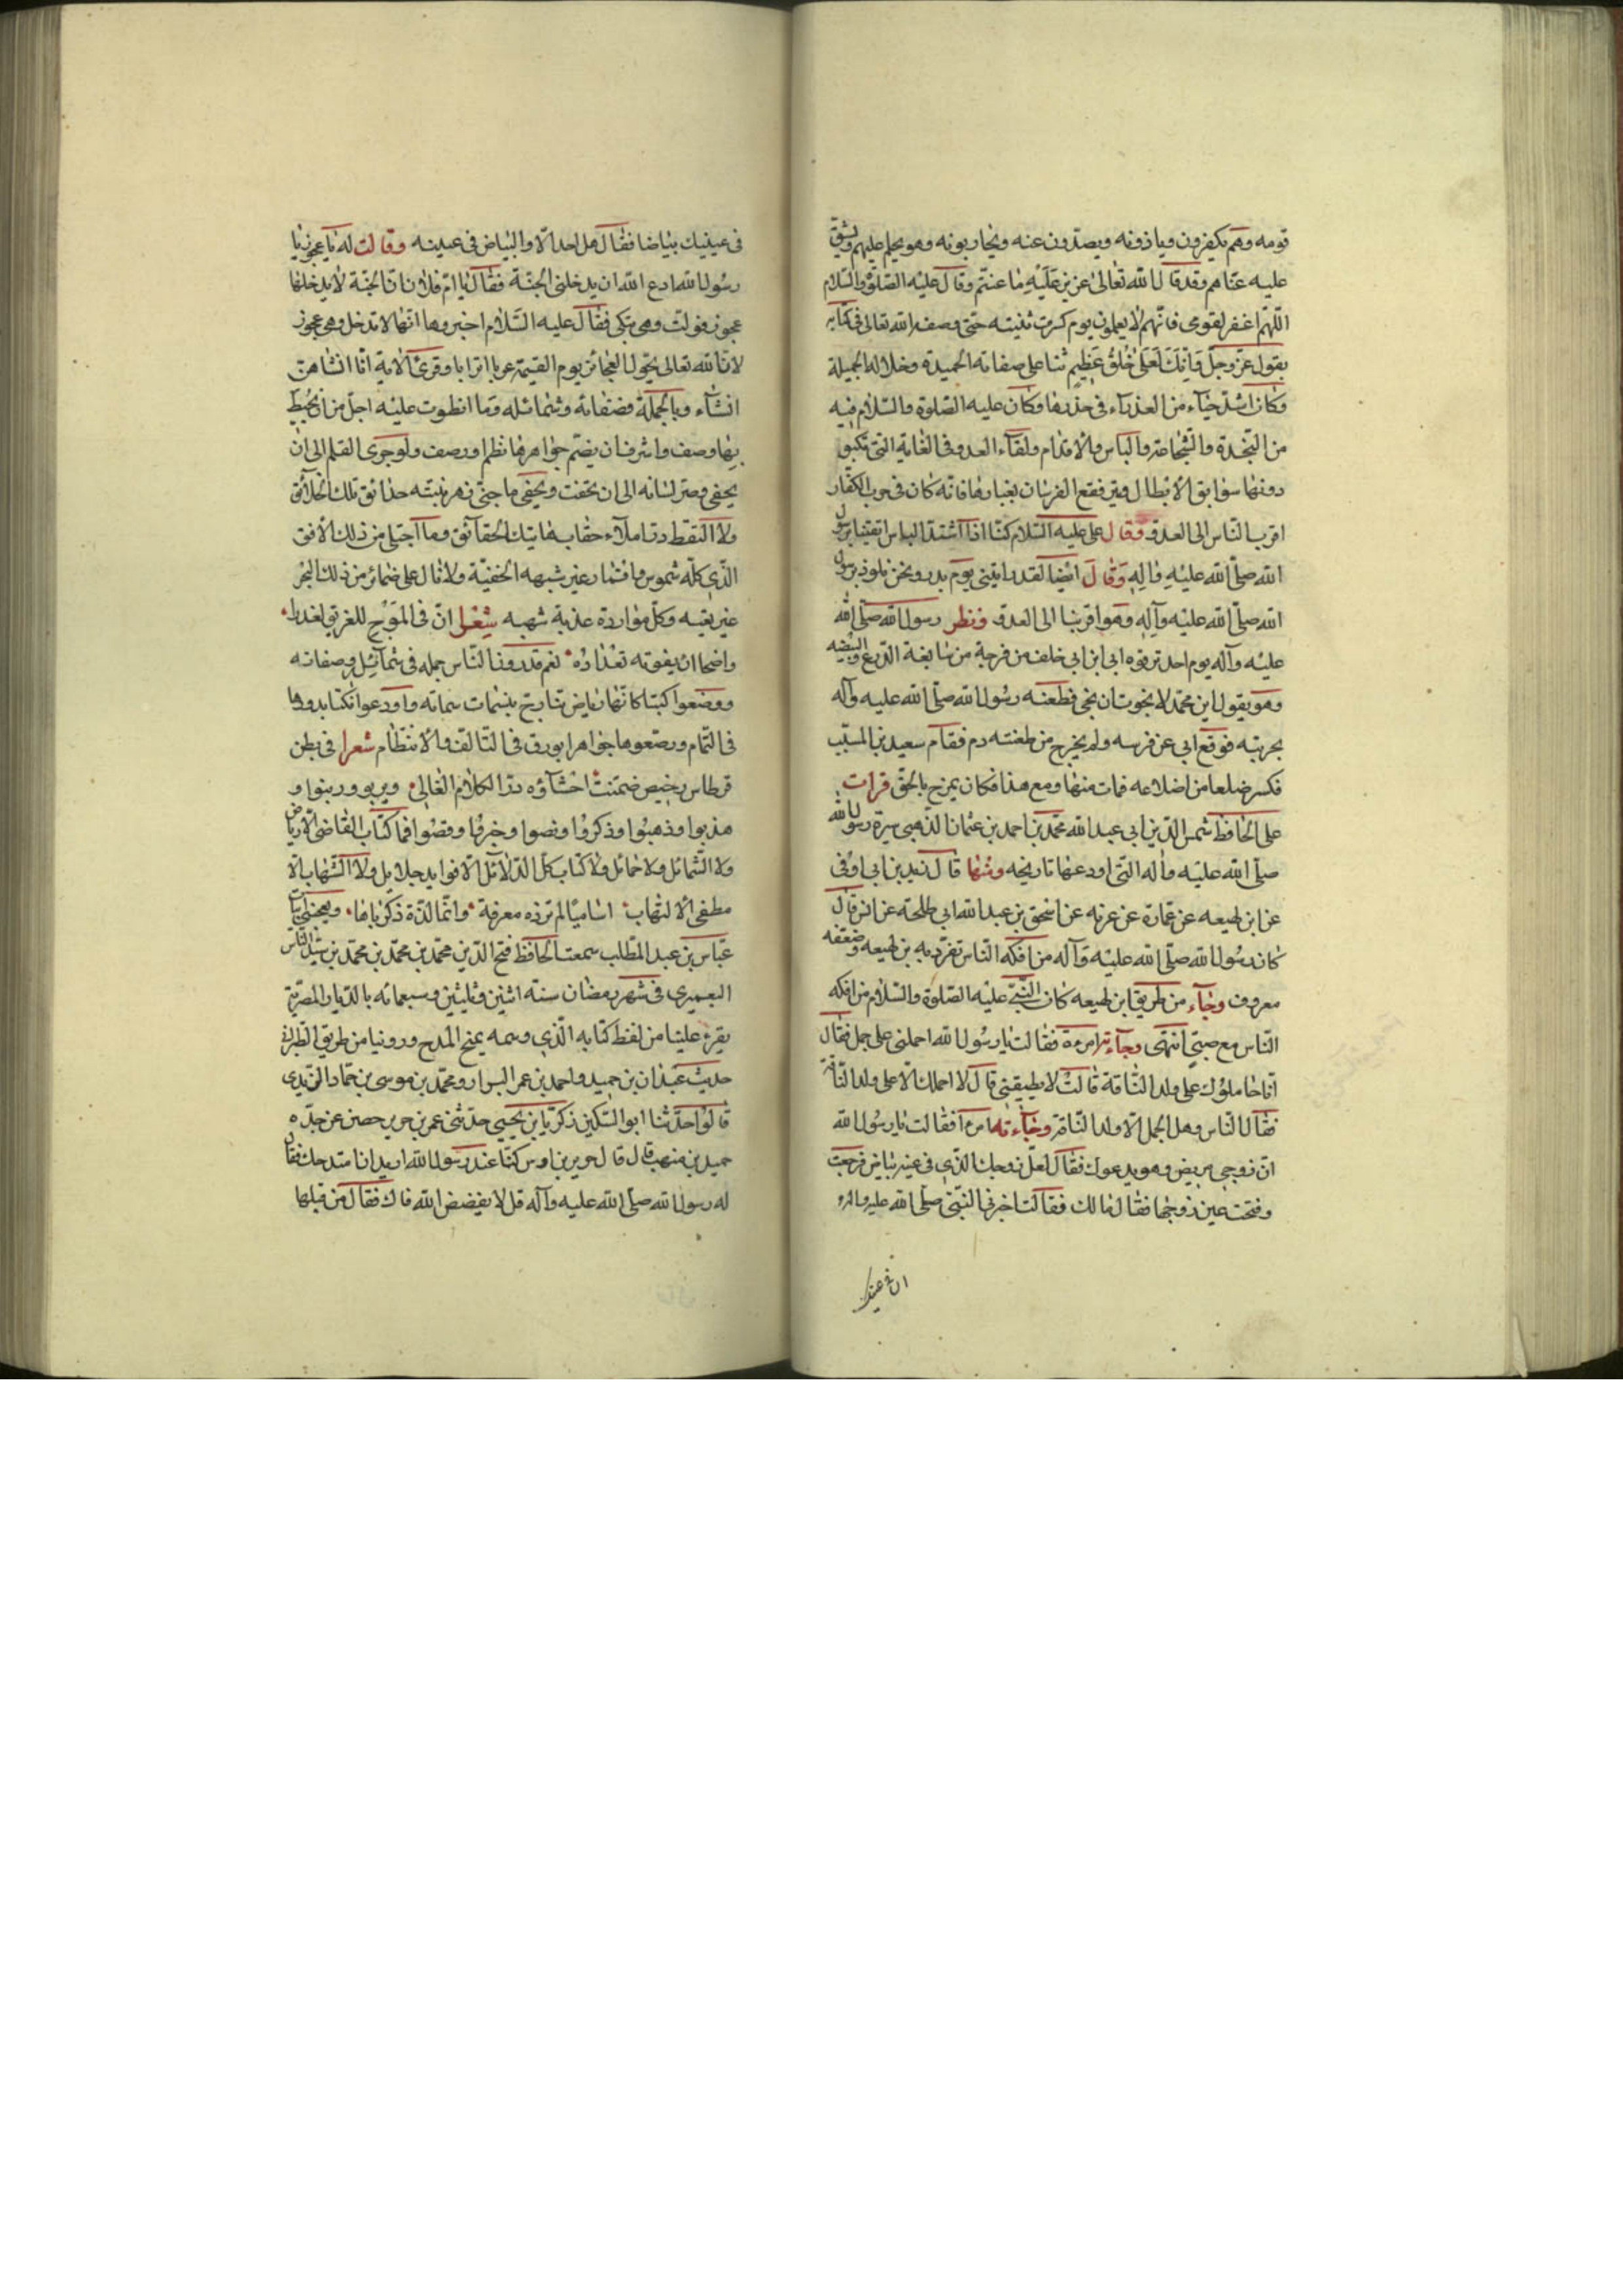 قومه وهم يكفرون وياذونه ويصدّون عنه ويحاربونه وهو يحلم عليهم ويشق
عليه عنتاهم وقد قال الله تعالى عزيز عَلَيْهِ ما عنتّم وقال عليْه الصّلوة والسّلام
اللّهمّ اغفر لقومى فانّهم لا يعلمون يوم كسرت ثنيته حتّى وصفه الله تعالى فى كتابه
بقول عزّ وجلّ وَاِنّكَ لَعَلىٰ خُلُقٍ عَظِيمٍ ثنا على صفاته الحميدة وخلاله الجميلة
وكان اشدّ حيآء من العذرآء فى خدرها وكان عليه الصّلوة والسّلام فيه
من النّجدة والشّجاعة والباس والاقدام ولقآء العدو فى الغاية الّتى تكبو
دونها سوابق الابطال ويتر فقع الفرسان بغبارها فانّه كان فى حرب الكفّار
اقرب النّاس الى العدوّ وقال على عليه السّلام كنّا اذا اشتدّ الباس اتقينا برسول
الله صلّى الله عليْهِ وَالِهِ وَقالَ ايْضا لقد رايتنى يوم بدر ونحن نلوذ برسول
الله صلّى الله عليْه وآلهِ وهو اقربنا الى العدوّ ونظر رسول الله صلّى الله
عليْه وآله يوم احد ترقوه ابى ابن ابى خلف من فرجة من سابغة الدّرع والبيْضه
وهو يقول اين محمّد لا نجوت ان نجى فطعنه رسول الله صلّى الله عليه وآله
بحربته فوقع ابى عن فرسه ولم يخرج من طعنته دم فقام سعيد بن المسيّب
فكسر ضلعا من اضلاعه فمات منها ومع هذا فكان يمزح بالحقّ قرات
على الحافظ شمس الدّين ابى عبد الله محمّد بن احمد بن عثمان الذّهبى سيرة رسول الله
صلّى الله عليه وآله الّتى اودعها تاريخه ومنها قال زيد بن ابى اوفى
عن ابن لهيعه عن عمارة عن غزيه عن اسحق بن عبد الله ابى طلحة عن انس قال
كان رسُول الله صلّى الله عليْه وآله من افكه النّاس تفرّد به بن لهيعه وضعفه
معروف وجآء من طريق ابن لهيعه كان النّبىّ عليْه الصّلوة والسّلام من افكه
النّاس مع صبىّ انتهى وجآءته امرءة فقالت يا رسُول الله احملنى على جمل فقال
انّا حاملوك على ولد النّاقة قالتْ لا يطيقنى قال لا احملك الّا على ولد النّاقة
فقال النّاس وهل الجمل الّا ولد النّاقة وجآءته امرءة فقالت يا رسُول الله
انّ زوجى مريض وهو يدعوك فقال لعلّ زوجك الّذى فى عينه بياض فرجعت
وفتحت عين زوجها فقال مالك فقالت اخبرنى النّبىّ صلّى الله عليه وآله
ان فى عينك
فى عينيك بياضا فقال هل احد الّا والبياض فى عينه وقالت له يا عجوز يا
رسُول الله ادع الله ان يدخلنى الجنّة فقال يا امّ فلان انّ الجنّة لا يدخلها
عجوز فولّت وهى تبكى فقال عليه السّلام اخبروها انّها لا تدخل وهى عجوز
لانّ الله تعالى يحوّل العجائز يوم القيمة عربا اترابا وقرئ الاية انّا انشاهنّ
انشآء وبالجملة فصفاته وشمائله وما انطوت عليْه اجلّ من ان يحيط
بها وصف واشرف ان يضمّ جواهرها نظم او رصف ولو جرى القلم الى ان
يحفى وصرّ لسانه الى ان يخفت ويخفى ما جنى زهرة نبته حدائق تلك الخلائق
ولا التقط درّنا ملآء حقاب هاتيك الحقآئق وما اجتلى من ذلك الافق
الّذى كلّه شموس واقمار غير شبهه الخفيّة ولا نال على ضمائر من ذلك البحر
غير بقيه وكلّ موارده عذبة شهيه شِعْر انّ فى الموْج للغريق لعذرا
واضحا ان يفوته تعْداده نعم قد رونا النّاس جمله فى شمآئِل وصفاته
ووضعوا كتبا كانّها رياض تتارّج بنسمات سماته واودعوا نكتا بدورها
فى التّمام ورصّعوها جواهرا بورق فى التالف والانتظام شعرا فى بطن
قرطاس رخيص ضمّنتْ احْشآؤه درّ الكلام الغالى وبربو وربنوا و
هذبوا وذهبُوا وذكروا ونصوا وخرقُوا وقصُوا فما كتاب القاضى الا رياض
ولا الشّمائل ولا خمائل ولا كتاب كلّ الدّلائل الّا فوايد جلايل ولا الشّهاب الّا
مطفى الالتهاب اساميًا لم تزده معرفة وانّما لذّة ذكرناها ويعجبنى ابيات
عبّاس بن عبد المطّلب سمعت الحافظ فتح الدّين محمّد بن محمّد بن محمّد بن سيّد النّاس
اليعمرى فى شهر رمضان سنة اثنين وثلثين وسبعمائه بالدّيار المصريّة
يقرء علينا من لفظ كتابه الّذى وسمه بمنح المدح وروينا من طريق الطّبرانى
حديث عبدان بن حميد واحمد بن عمر البزار ومحمّد بن موسى بن حمّاد اليزيدى
قالوا حدّثنا ابو السّكين زكريّا بن يحيى حدّثنى عمر بن حرير حصن عن جدّه
حميد بن منهب قال قال حرير بن اوس كنّا عند رسول الله اريد ان امتدحك فقال
له رسول الله صلّى الله عليه وآله قل لا يفضض الله فاك فقال من قبلها